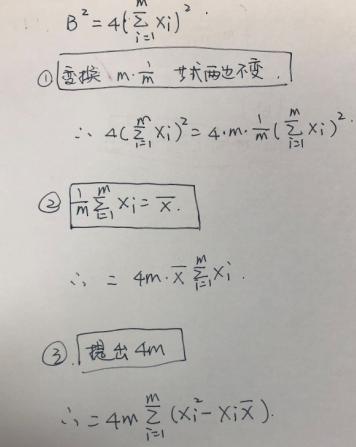 B² = 4(∑_{i=1}^{m} xi)².
① 变换 m·1/m 其式两边不变.
∴ 4(∑_{i=1}^{m} xi)² = 4·m·1/m (∑_{i=1}^{m} xi)².
② 1/m ∑_{i=1}^{m} xi = x̄.
∴ = 4m·x̄ ∑_{i=1}^{m} xi.
③. 提出4m
∴ = 4m ∑_{i=1}^{m} (xi² - xi x̄).